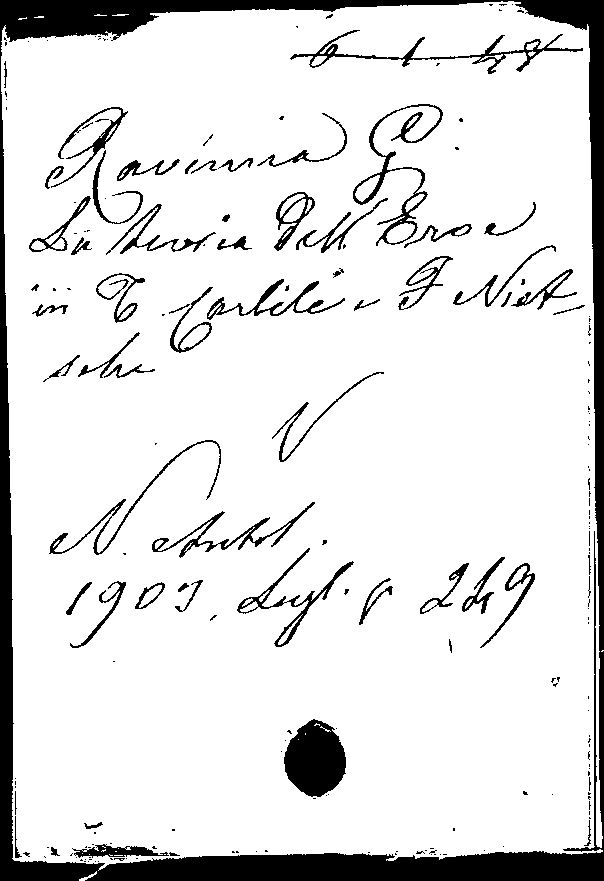 6. 1. 48
Ravinnia G:
La teoria dell'Eroe
in T Carlile e F Niet-
sche
V
N. Antol.
1903, Lugl. p 249